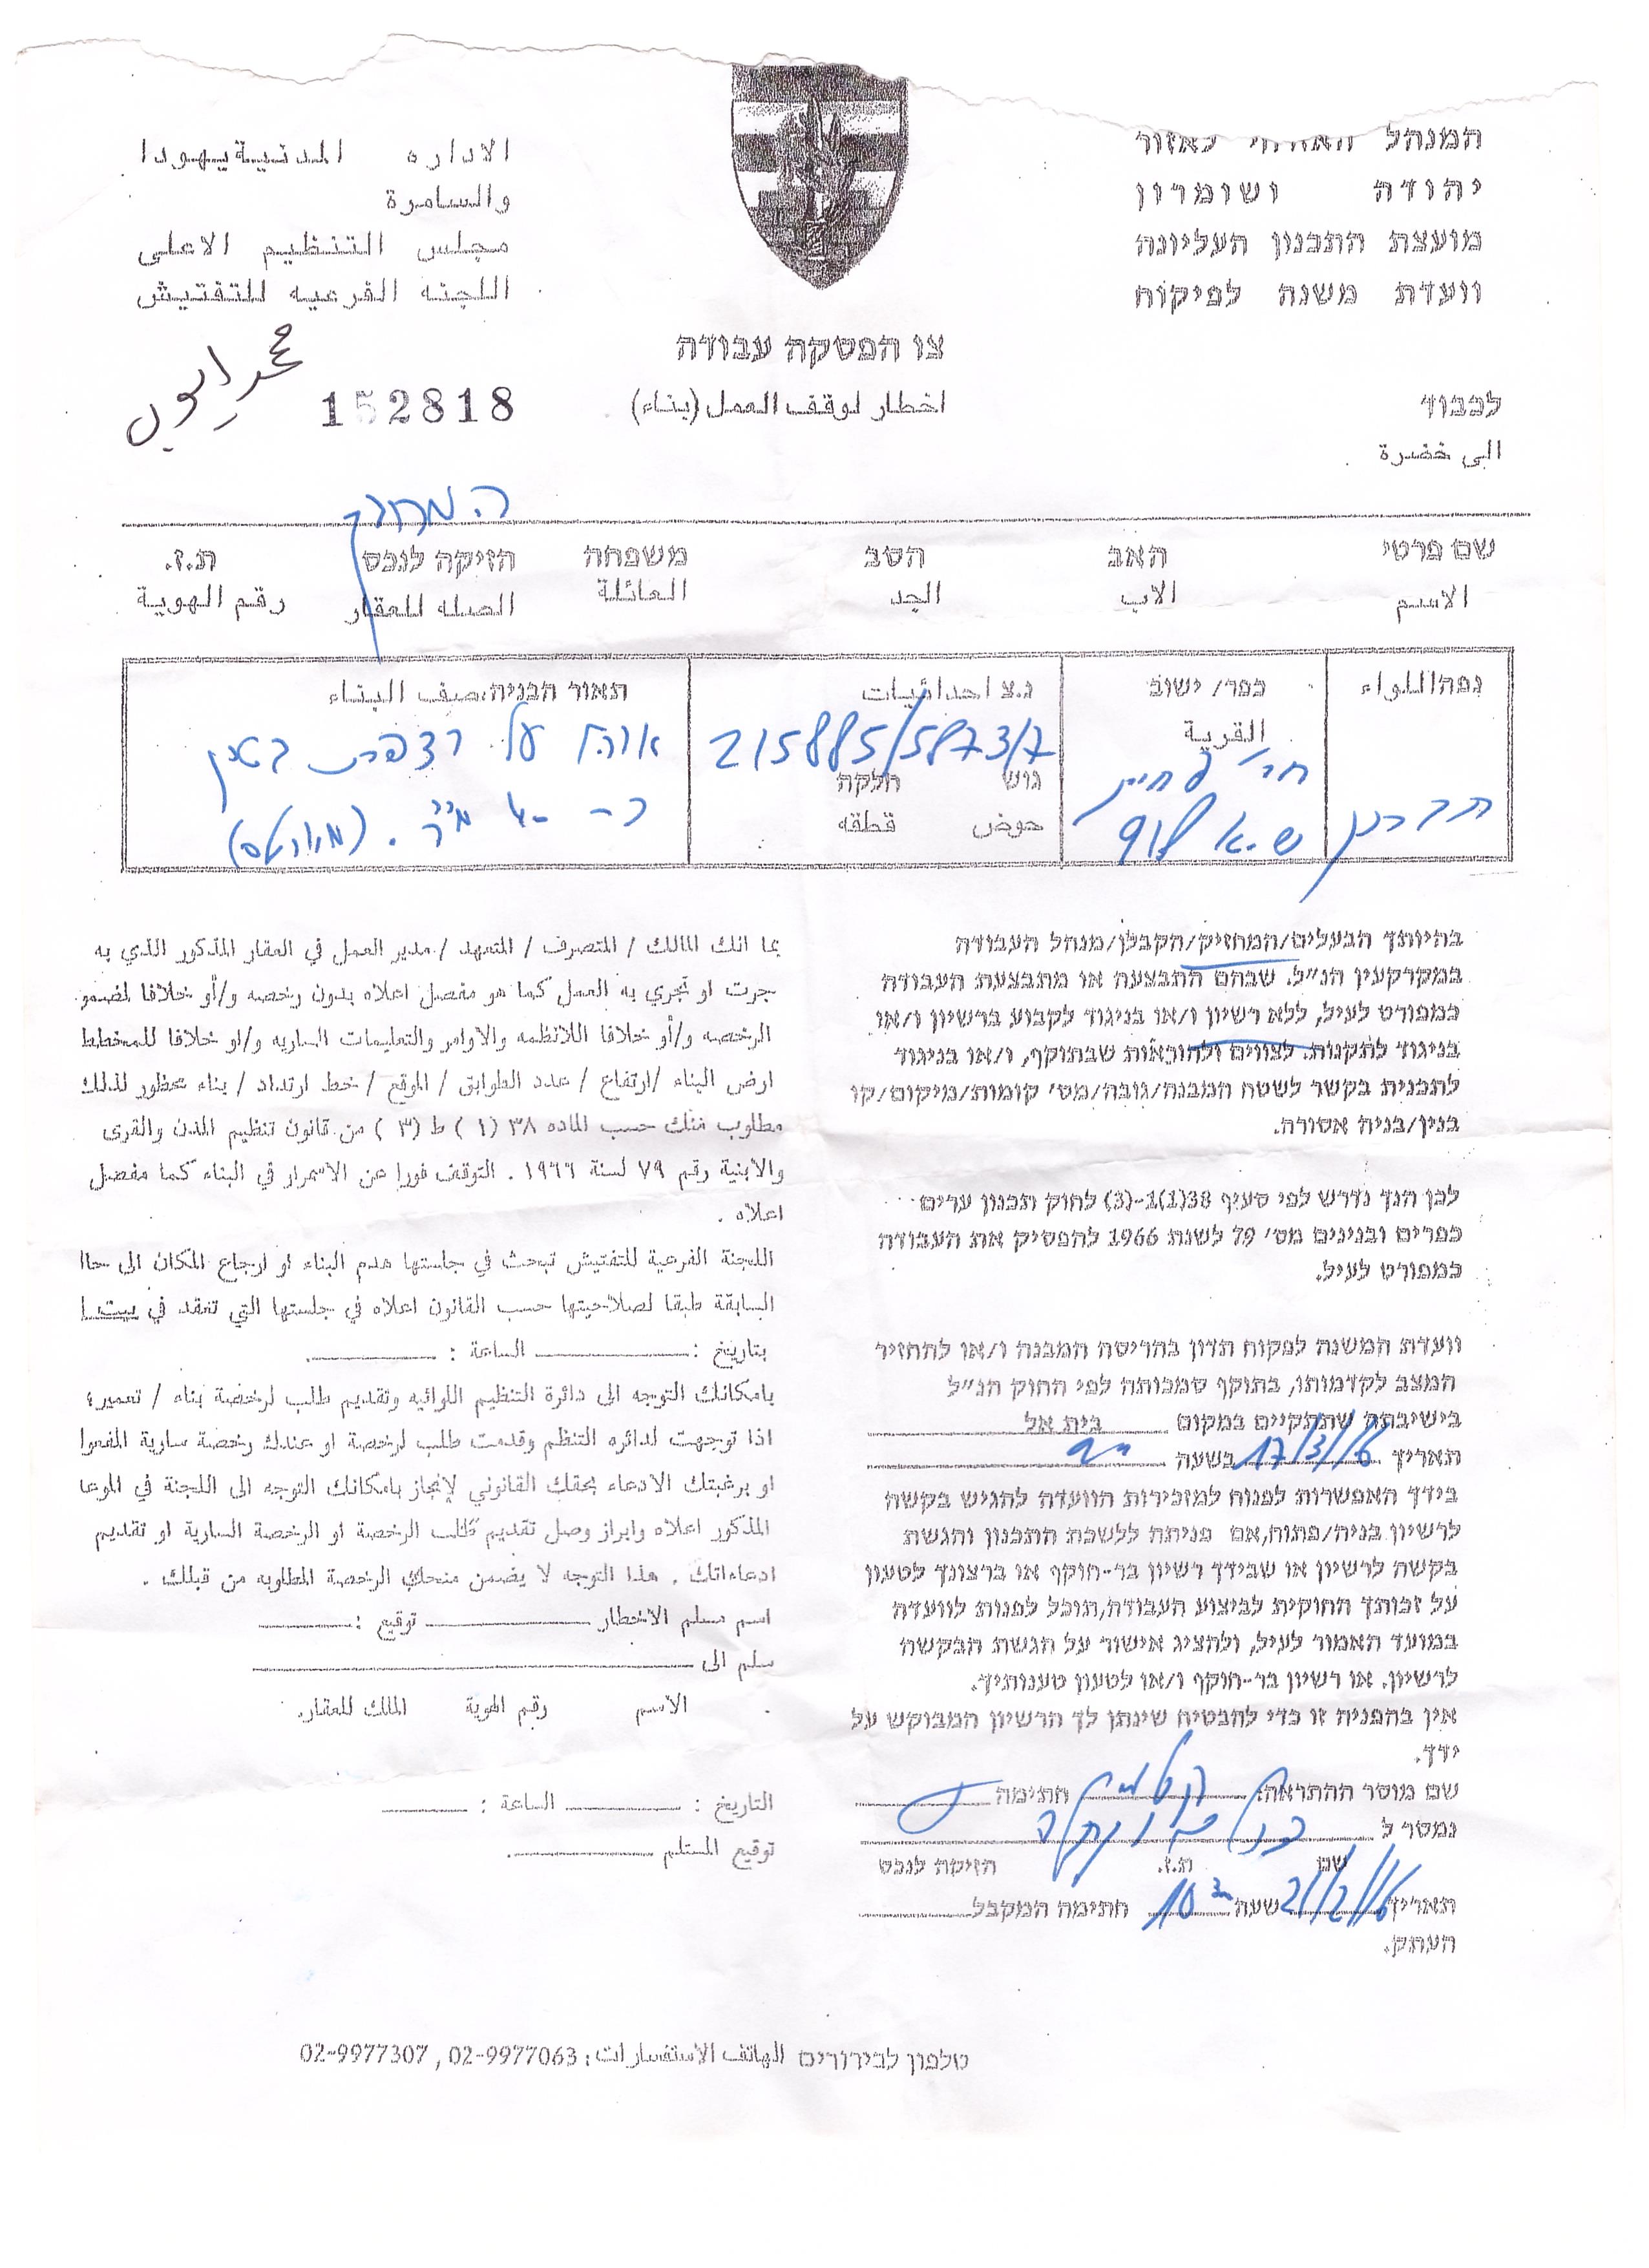 המנהל האזרחי לאזור
יהודה ושומרון
מועצת התכנון העליונה
וועדת משנה לפיקוח
الاداره المدنيية يهودا
والسامرة
مجلس التنظيم الاعلى
اللجنه الفرعيه للتفتيش
צו הפסקה עבודה
اخطار لوقف العمل (بناء)
152818
לכבוד
الى حضرة
המחזיק
שם פרטי האב הסב משפחה הזיקה לנכס ת.ז.
الاسم الاب الجد العائلة الصله للعقار رقم الهوية
נפה اللواء
כפר/ ישוב
القرية
נ.צ احداثيات
215885/587317
גוש חלקה
حوض قطقه
תאור הבניה، صيف البناء
אוהל על רצפת בטון
כ- 40 מ"ר.
בהיותך הבעלים/המחזיק/הקבלן/מנהל העבודה
במקרקעין הנ״ל. שבהם התבצעה או מתבצעת העבודה
כמפורט לעיל, ללא רשיון ו/או בניגוד לקבוע ברשיון ו/או
בניגוד לתקנות. לצווים ולהוראות שבתוקף, ו/או בניגוד
לתכנית בקשר לשטח המבנה/גובה/מס׳ קומות/מיקום/קו
בנין/בניה אסורה.
לכן הנך נדרש לפי סעיף 38(1)1-(3) לחוק תכנון ערים
כפרים ובנינים מס׳ 79 לשנת 1966 להפסיק את העבודה
כמפורט לעיל.
וועדת המשנה לפקוח תדון בהריסה המבנה ו/או להחזיר
המצב לקדמותו, בתוקף סמכותה לפי החוק הנ״ל
בישיבתה שתתקיים במקום בית אל
תאריך 17/3/16 בשעה 9
בידך האפשרות לפנות למזכירות הוועדה להגיש בקשה
לרשיון בניה/פתוח, אם פניתה ללשכת התכנון והגשת
בקשה לרשיון או שבידך רשיון בר-חוקף או ברצונך לטעון
על זכותך החוקית לביצוע העבודה, תוכל לפנות לוועדה
במועד האמור לעיל, ולהציג אישור על הגשת הבקשה
לרשיון. או רשיון בר-חוקף ו/או לטעון טענותיך.
אין בהפניה זו כדי להבטיח שינתן לך הרשיון המבוקש על
ידך.
שם מוסר ההתראה: חתימה
נמסר ל
שם ת.ז. הזיקה לנכס
תאריך 21/2/16 שעה 10 חתימה המקבל
העתק.
بما انك المالك / المتصرف / المتعهد / مدير العمل في العقار المذكور الذي به
جرت او تجري به العمل كما هو مفصل اعلاه بدون رخصه و/أو خلافا لمضمو
الرخصه و/أو خلافا اللانظمه والاوامر والتعليمات الساريه و/او خلافا للمخطط
ارض البناء /ارتفاع / عدد الطوابق / الموقع / خط ارتداد / بناء محظور لذلك
مطلوب منك حسب الماده ٣٨ (١) ط (٣) من قانون تنظيم المدن والقرى
والابنية رقم ٧٩ لسنة ١٩٦٦ . التوقف فورا عن الاسمرار في البناء كما مفصل
اعلاه .
اللجنة الفرعية للتفتيش تبحث في جلستها هدم البناء او ارجاع المكان الى حاا
السابقة طبقا لصلاحيتها حسب القانون اعلاه في جلستها التي تعقد في بيت ا
بتاريخ : الساعة : .
بامكانك التوجه الى دائرة التنظيم اللوائيه وتقديم طلب لرخصة بناء / تعمير؛
اذا توجهت لدائره التنظم وقدمت طلب لرخصة او عندك رخصة سارية المفعوا
او برغبتك الادعاء بحقك القانوني لإنجاز بامكانك التوجه الى اللجنة في الموعا
المذكور اعلاه وابراز وصل تقديم طلب الرخصة او الرخصة السارية او تقديم
ادعاءاتك . هذا التوجه لا يضمن منحك الرخصة المطلوبه من قبلك .
اسم مسلم الاخطار توقيع :
سلم الى
الاسم رقم الهوية المالك للعقار.
التاريخ : الساعة :
توقيع المستلم .
טלפון לבירורים الهاتف الاستفسارات : 02-9977063 , 02-9977307